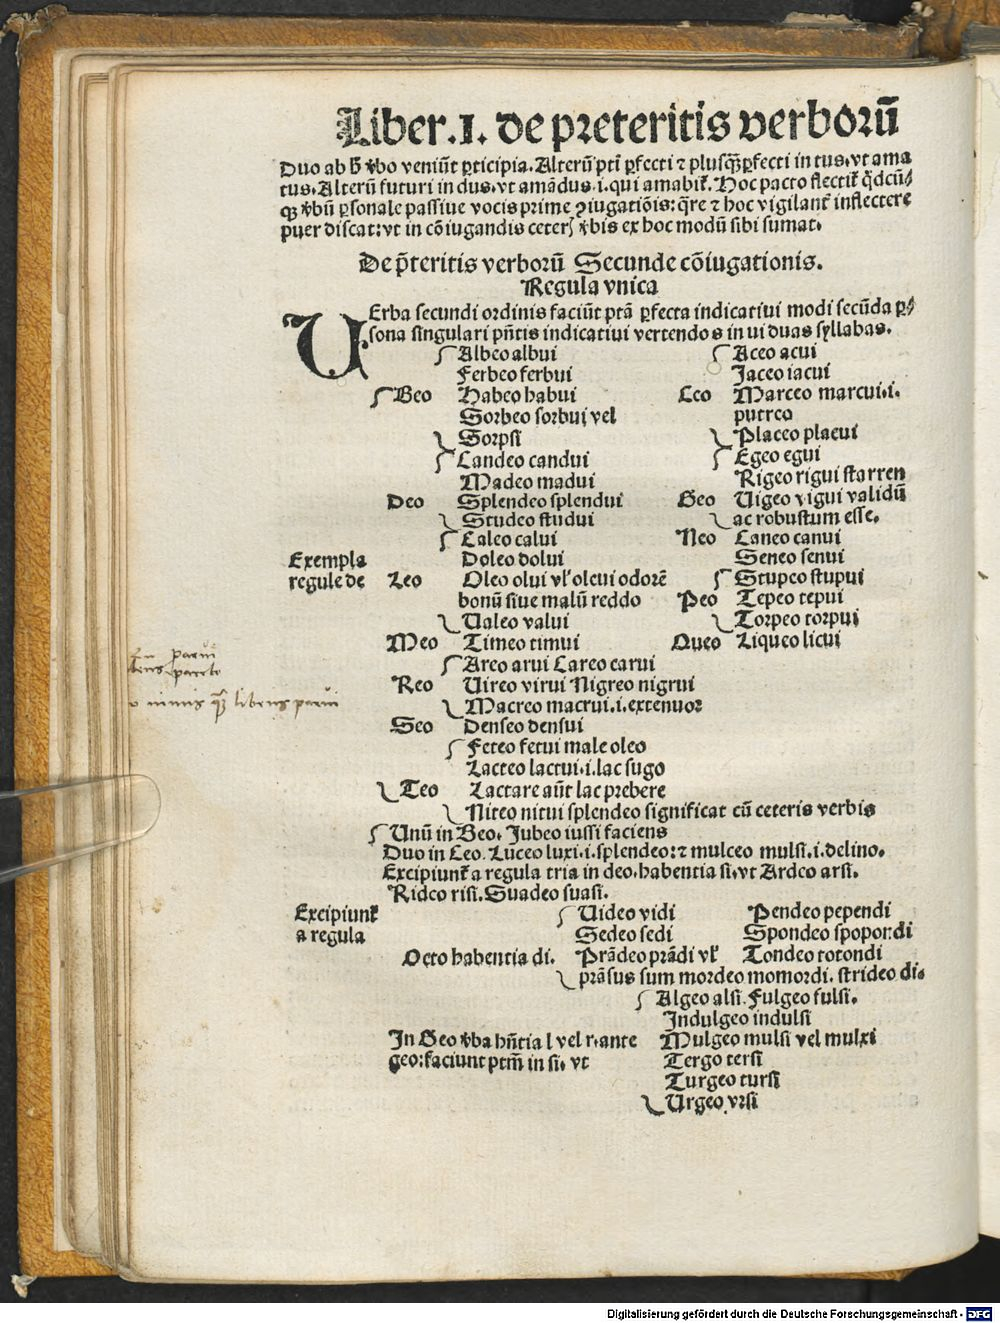 Liber.I. de preteritis verborū
Duo ab h̄ v̄bo veniūt ꝑticipia. Alterū pt̄i ꝑfecti ⁊ plusq̄ꝑfecti in tus. vt ama
tus. Alterū futuri in dus. vt amādus .i. qui amabit̄. Hoc pacto flectit̄ q̄dcū⸗
qꝫ v̄bū ꝑsonale passiue vocis prime ꝯiugatiōis: q̄re ⁊ hoc vigilant̄ inflectere
puer discat: vt in cōiugandis ceterꝭ v̄bis ex hoc modū sibi sumat.
De p̄teritis verborū Secunde cōiugationis.
Regula vnica
UErba secundi ordinis faciūt ptā ꝑfecta indicatiui modi secūda ꝑ⸗
sona singulari pn̄tis indicatiui vertendo s in ui duas syllabas.
Albeo albui
Ferbeo ferbui
Beo Habeo habui
Sorbeo sorbui vel
Sorpsi
Candeo candui
Madeo madui
Deo Splendeo splendui
Studeo studui
Caleo calui
Exempla
regule de
Doleo dolui
Leo Oleo olui vl̓ oleui odorē
bonū siue malū reddo
Ualeo valui
Meo Timeo timui
Aceo acui
Jaceo iacui
Ceo Marceo marcui .i.
putreo
Placeo placui
Egeo egui
Rigeo rigui starren
Geo Uigeo vigui validū
ac robustum esse.
Neo Caneo canui
Seneo senui
Stupeo stupui
Peo Tepeo tepui
Torpeo torpui
Queo Liqueo licui
Areo arui Careo carui
Reo Uireo virui Nigreo nigrui
Macreo macrui .i. extenuor
Seo Denseo densui
Feteo fetui male oleo
Lacteo lactui .i. lac sugo
Teo Lactare aūt lac prebere
Niteo nitui splendeo significat cū ceteris verbis
Unū in Beo. Jubeo iussi faciens
Duo in Ceo. Luceo luxi .i. splendeo: ⁊ mulceo mulsi .i. delino.
Excipiunt̄ a regula tria in deo. habentia si. vt Ardeo arsi.
Rideo risi. Suadeo suasi.
Excipiunt̄
a regula
Octo habentia di.
Uideo vidi Pendeo pependi
Sedeo sedi Spondeo spopondi
Prādeo prādi vl̓ Tondeo totondi
prāsus sum mordeo momordi. strideo di.
Algeo alsi. Fulgeo fulsi.
Indulgeo indulsi
In Geo v̄ba hn̄tia l vel r. ante
geo: faciunt ptm̄ in si. vt
Mulgeo mulsi vel mulxi
Tergo tersi
Turgeo tursi
Urgeo vrsi
parui
libens parui
Digitalisierung gefördert durch die Deutsche Forschungsgemeinschaft - DFG